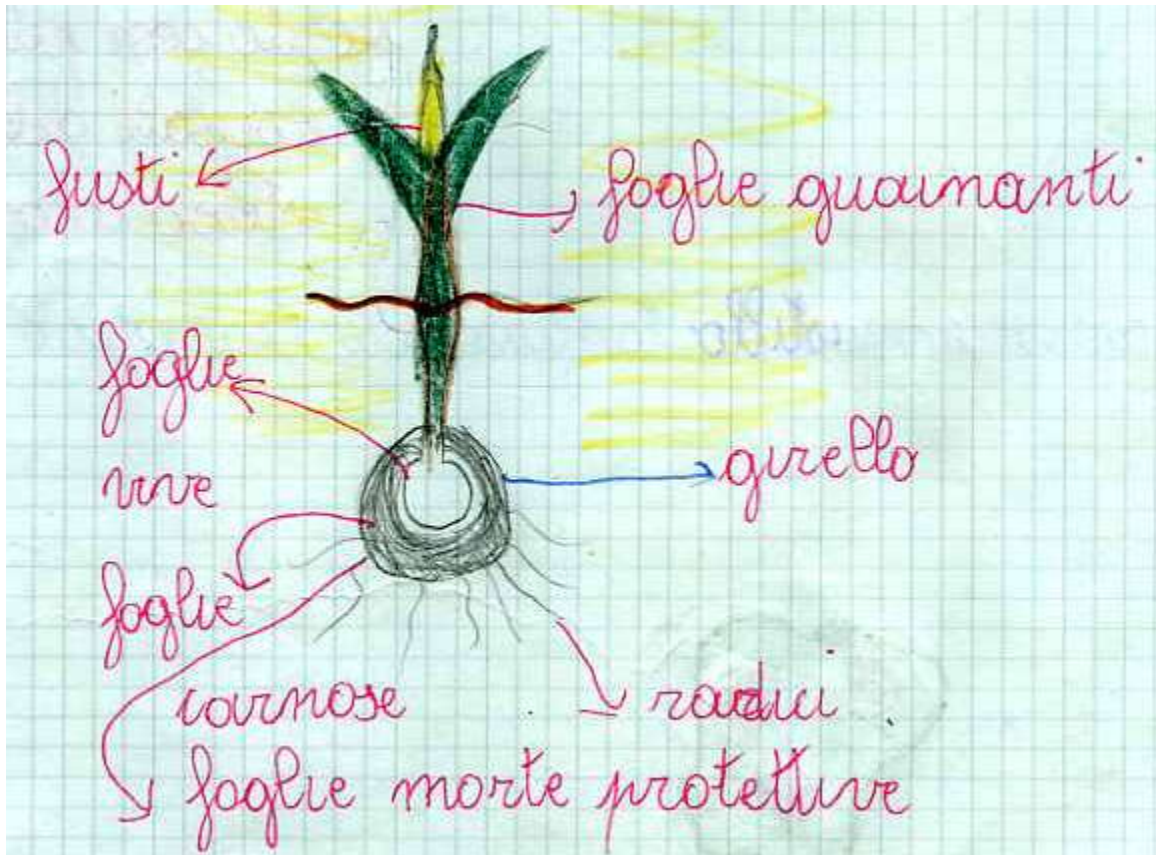 fusti
foglie guainanti
foglie
vive
girello
foglie
carnose
radici
foglie morte protettive